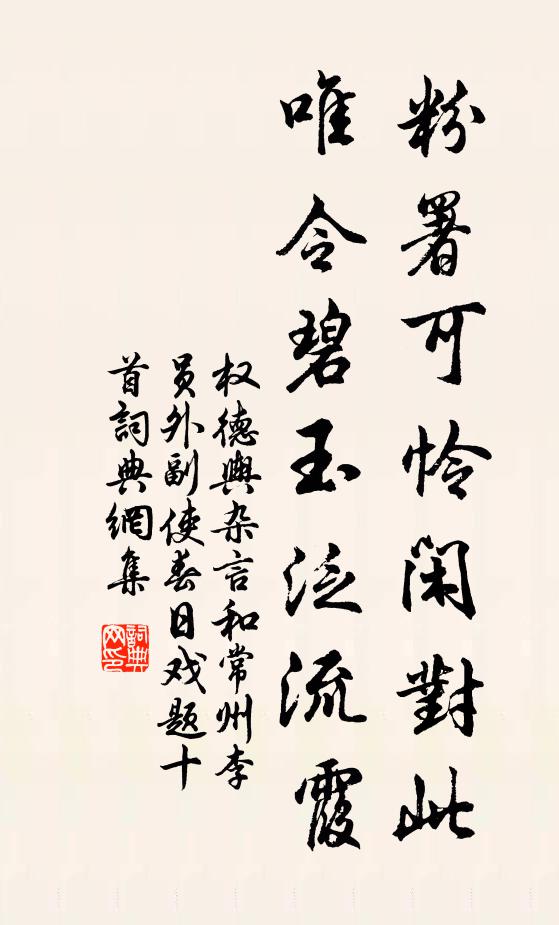 粉署可怜閑對此
唯令碧玉泛流霞
权德輿杂言和常州李
員外副使春日戏题十
首詞典網集
詞典
网印